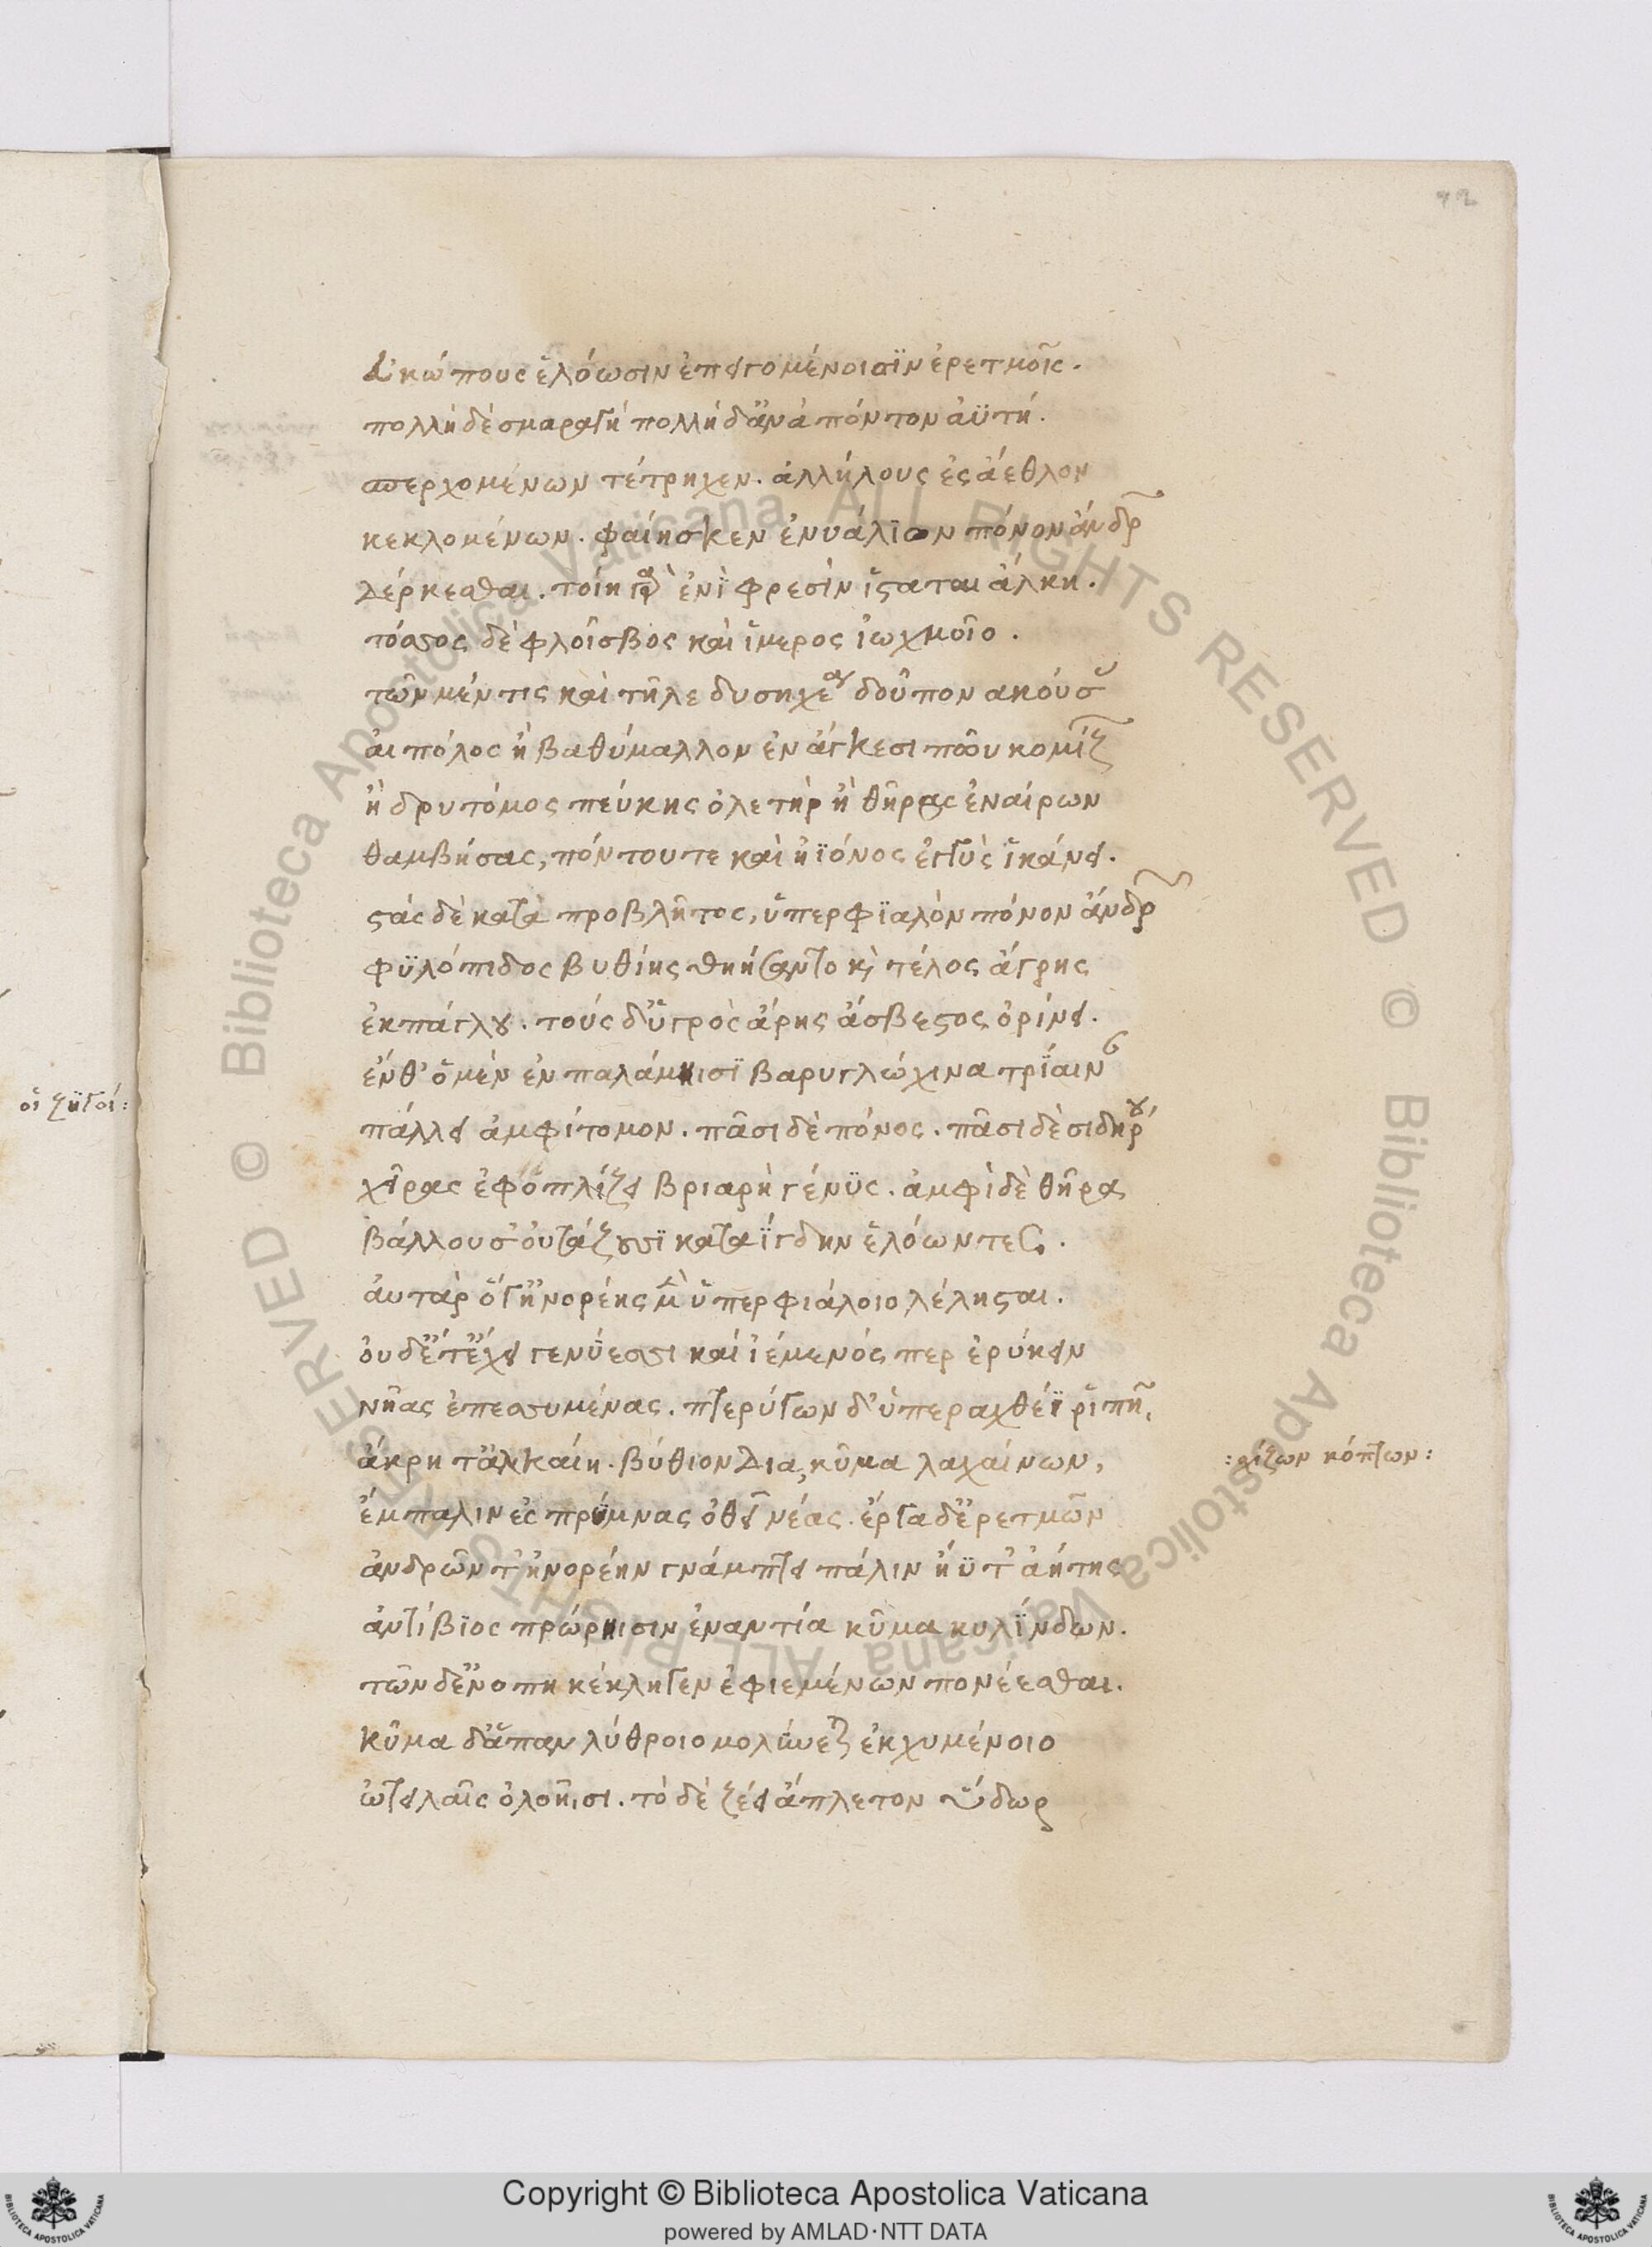 92
ἀκώπους ἑλόωσιν ἐπειγομένοισϊν ἐρετμοῖς.
πολλὴ δὲ σμαραγὴ πολλὴ δ' ἀνὰ πόντον ἀϋτή.
σπερχομένων τέτρηχεν. ἀλλήλους ἐς ἄεθλον
κεκλομένων. φαίησκεν ἐνυάλϊον πόνον ἀνδρῶν
δέρκεσθαι. τοίη γὰρ ἐνὶ φρεσὶν ἵσταται ἀλκή.
τόσσος δὲ φλοῖσβος καὶ ἵμερος ἰωχμοῖο.
τῶν μέν τις καὶ τῆλε δυσηχέα δοῦπον ακούσας
ἀιπόλος ἢ βαθύμαλλον ἐν ἄγκεσι πῶυ κομίζων
ἢ δρυτόμος πεύκης ὀλετὴρ ἢ θῆρας ἐναίρων
θαμβήσας, πόντου τε καὶ ἠϊόνος ἐγγὺς ἱκάνει.
στὰς δὲ κατὰ προβλῆτος, ὑπερφϊαλὸν πόνον ἀνδρῶν
φϋλόπιδος βυθίης θηήσαντο κὶ τέλος ἄγρης
ἐκπάγλου. τοὺς δ' ὑγρὸς ἄρης ἄσβεστος ὀρίνει.
ἔνθ' ὁ μὲν ἐν παλάμηισϊ βαρυγλώχινα τρίαιναν
πάλλει ἀμφίτομον. πᾶσι δὲ πόνος. πᾶσι δὲ σιδήρου
χεῖρας ἐφοπλίζει βριαρὴ γένϋς. ἀμφὶ δὲ θῆρα
βάλλουσ' οὐτάζουσϊ κατάϊγδην ἑλόωντες.
ἀυτὰρ ὅγ' ἠνορέης μὲν ὑπερφιάλοιο λέλησται.
ὀυδ' ἔτ' ἔχει γενύεσσι καὶ ἱέμενός περ ἐρύκειν
νῆας ἐπεσσυμένας. πτερύγων δ' ὑπεραχθέϊ ῥιπῆι
ἄκρη τ' ἀλκαίη. βύθιον δια κῦμα λαχαίνων,
ἔμπαλιν ἐς πρύμνας ὀθεῖ νέας. ἔργα δ' ἐρετμῶν
ἀνδρῶν τ' ἠνορέην γνάμπτει πάλιν ἠΰτ' ἀήτης
ἀντίβϊος πρώρηισιν ἐναντία κῦμα κυλίνδων.
τῶν δ' ἐνοπὴ κέκληγεν ἐφιεμένων πονέεσθαι.
κῦμα δ' ἅπαν λύθροιο μολύνεται ἐκχυμένοιο
ὠτειλαῖς ὀλοῆισι. τὸ δὲ ζέει ἄπλετον ὕδωρ
οἱ ζητοί:
:χίζων κόπτων:
© Biblioteca Apostolica Vaticana ALL RIGHTS RESERVED © Biblioteca Apostolica Vaticana ALL RIGHTS RESERVED
Copyright © Biblioteca Apostolica Vaticana
powered by AMLAD·NTT DATA